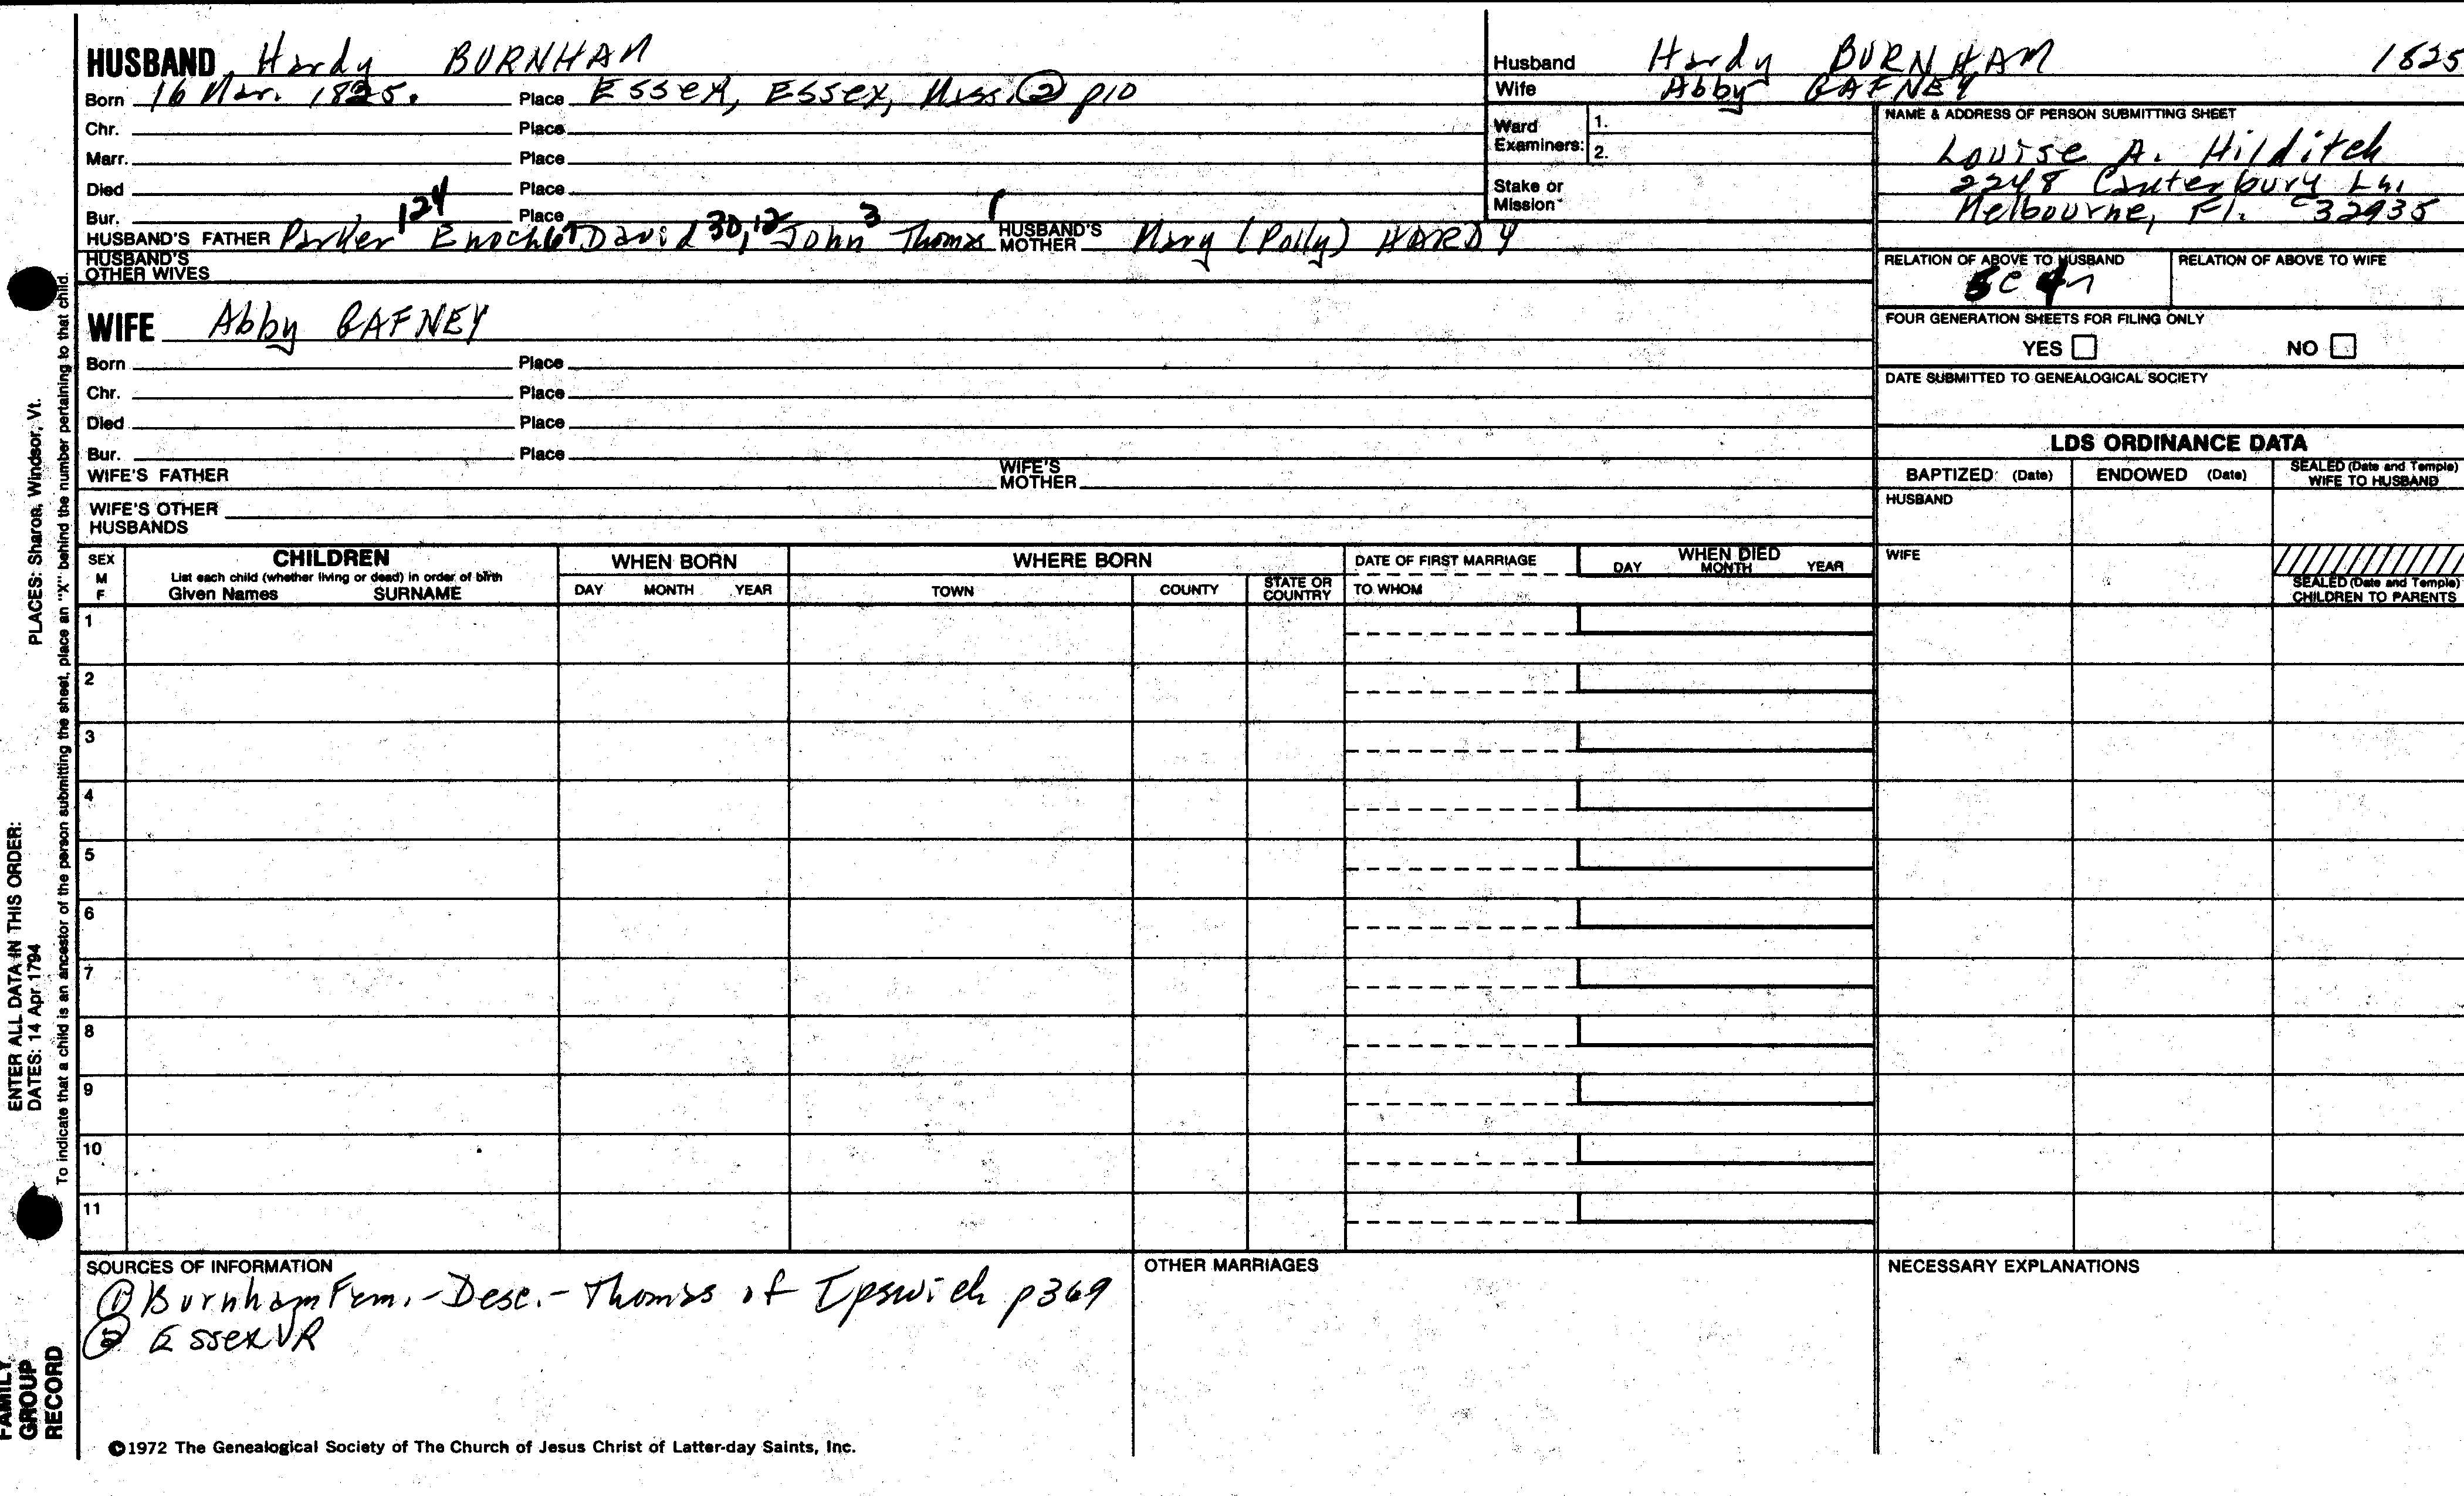 HUSBAND Hardy BURNHAM
Born 16 Mar. 1825. Place Essex, Essex, Mass. ② p10
Chr. Place
Marr. Place
Died Place
Bur. Place
HUSBAND'S FATHER Parker 124 Enoch 67 David 30, 12 John 3 Thomas 1 HUSBAND'S MOTHER Mary (Polly) HARDY
HUSBAND'S OTHER WIVES
WIFE Abby GAFNEY
Born Place
Chr. Place
Died Place
Bur. Place
WIFE'S FATHER WIFE'S MOTHER
WIFE'S OTHER HUSBANDS
Husband Hardy BURNHAM 1825
Wife Abby GAFNEY
Ward Examiners: 1.
2.
Stake or Mission
NAME & ADDRESS OF PERSON SUBMITTING SHEET
Louise A. Hilditch
2248 Canterbury Ln.
Melbourne, Fl. 32935
RELATION OF ABOVE TO HUSBAND RELATION OF ABOVE TO WIFE
FOUR GENERATION SHEETS FOR FILING ONLY
YES NO
DATE SUBMITTED TO GENEALOGICAL SOCIETY
LDS ORDINANCE DATA
BAPTIZED (Date) ENDOWED (Date) SEALED (Date and Temple) WIFE TO HUSBAND
HUSBAND
WIFE
SEALED (Date and Temple) CHILDREN TO PARENTS
SEX M F
CHILDREN
List each child (whether living or dead) in order of birth
Given Names SURNAME
WHEN BORN
DAY MONTH YEAR
WHERE BORN
TOWN COUNTY STATE OR COUNTRY
DATE OF FIRST MARRIAGE
TO WHOM
WHEN DIED
DAY MONTH YEAR
1
2
3
4
5
6
7
8
9
10
11
SOURCES OF INFORMATION
① Burnham Fam.-Desc.-Thomas of Ipswich p369
② Essex VR
OTHER MARRIAGES
NECESSARY EXPLANATIONS
©1972 The Genealogical Society of The Church of Jesus Christ of Latter-day Saints, Inc.
FAMILY GROUP RECORD
ENTER ALL DATA IN THIS ORDER:
DATES: 14 Apr 1794
PLACES: Sharon, Windsor, Vt.
To indicate that a child is an ancestor of the person submitting the sheet, place an "X" behind the number pertaining to that child.